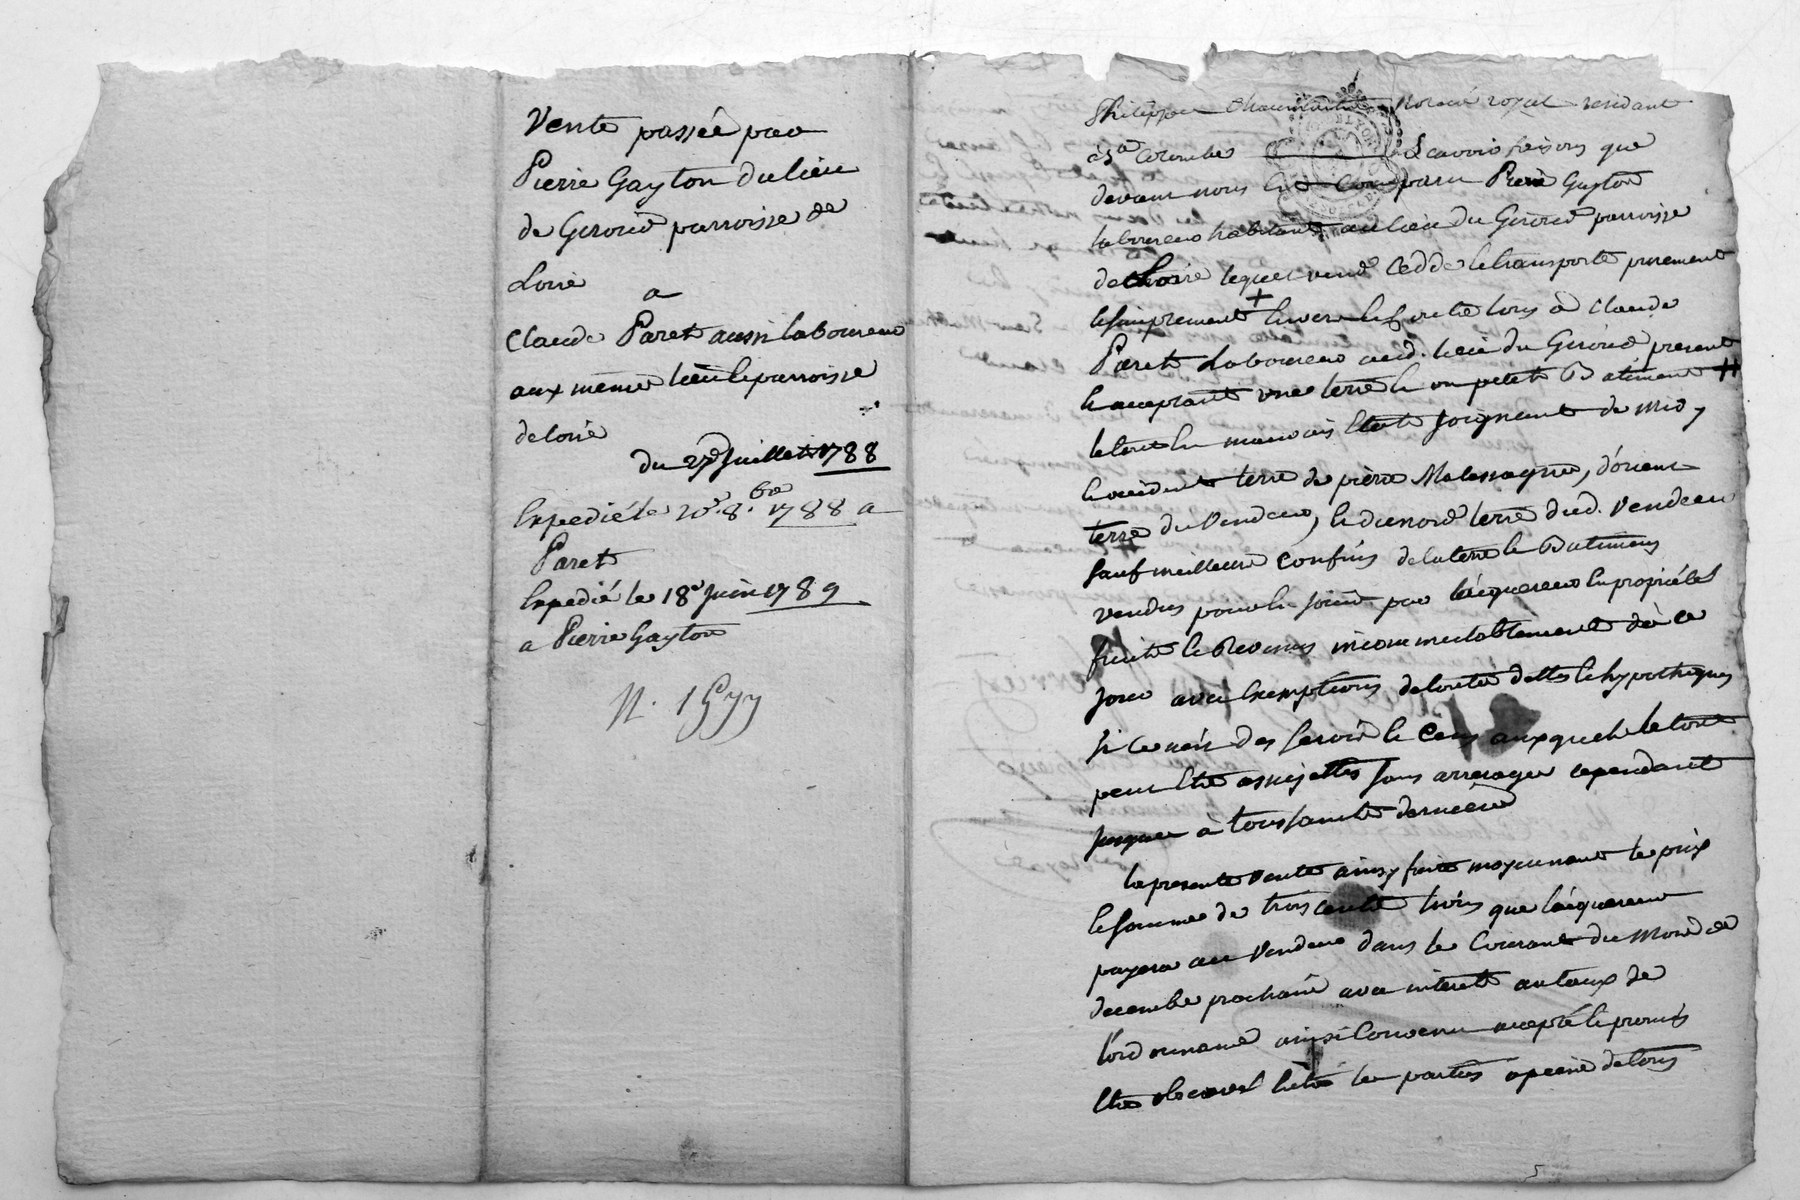 Vente passée par
Pierre Gayton du lieu
de Giroud parroisse de
Loire
a
Claude Paret aussi laboureur
aux meme lieu et parroisse
de Loire
du 27 Juillet 1788
Expedié le 20e 8bre 1788 a
Paret
Expedié le 18e Juin 1789
a Pierre Gayton
N. 1577
Philippe Chaumartin Notaire royal residant
à Ste Colombe Scavoir faisons que
devant nous est comparu Pierre Gayton
laboureur habitant au lieu du Giroud parroisse
de Loire lequel vend cedde et transporte purement
et simplement + envers et contre tous a Claude
Paret Laboureur aud. lieu du Giroud present
et acceptant une terre et un petit Batiment #
le tout en mauvais etat joignant de midy
et occident terre de pierre Malassagne, d'orient
terre du Vendeur, et du nord terre dud. Vendeur
sauf meilleurs confins de la terre et Batiment
vendus pour et jouir par l'acquereur en proprietés
fruits et Revenus incommutablement dès ce
jour avec exemptions de toutes dettes et hypotheques
si ce n'est des servis et cens auxquels le tout
peut etre assujettis sans arrerages cependant
jusques à toussaints derniere
la presente vente ainsy faite moyennant le prix
et somme de trois cents livres que l'acquereur
payera au Vendeur dans le Courant du Mois de
decembre prochain avec interets au taux de
l'ordonnance ainsi convenu accepté et promis
etre observé entre les parties a peine de tous
5